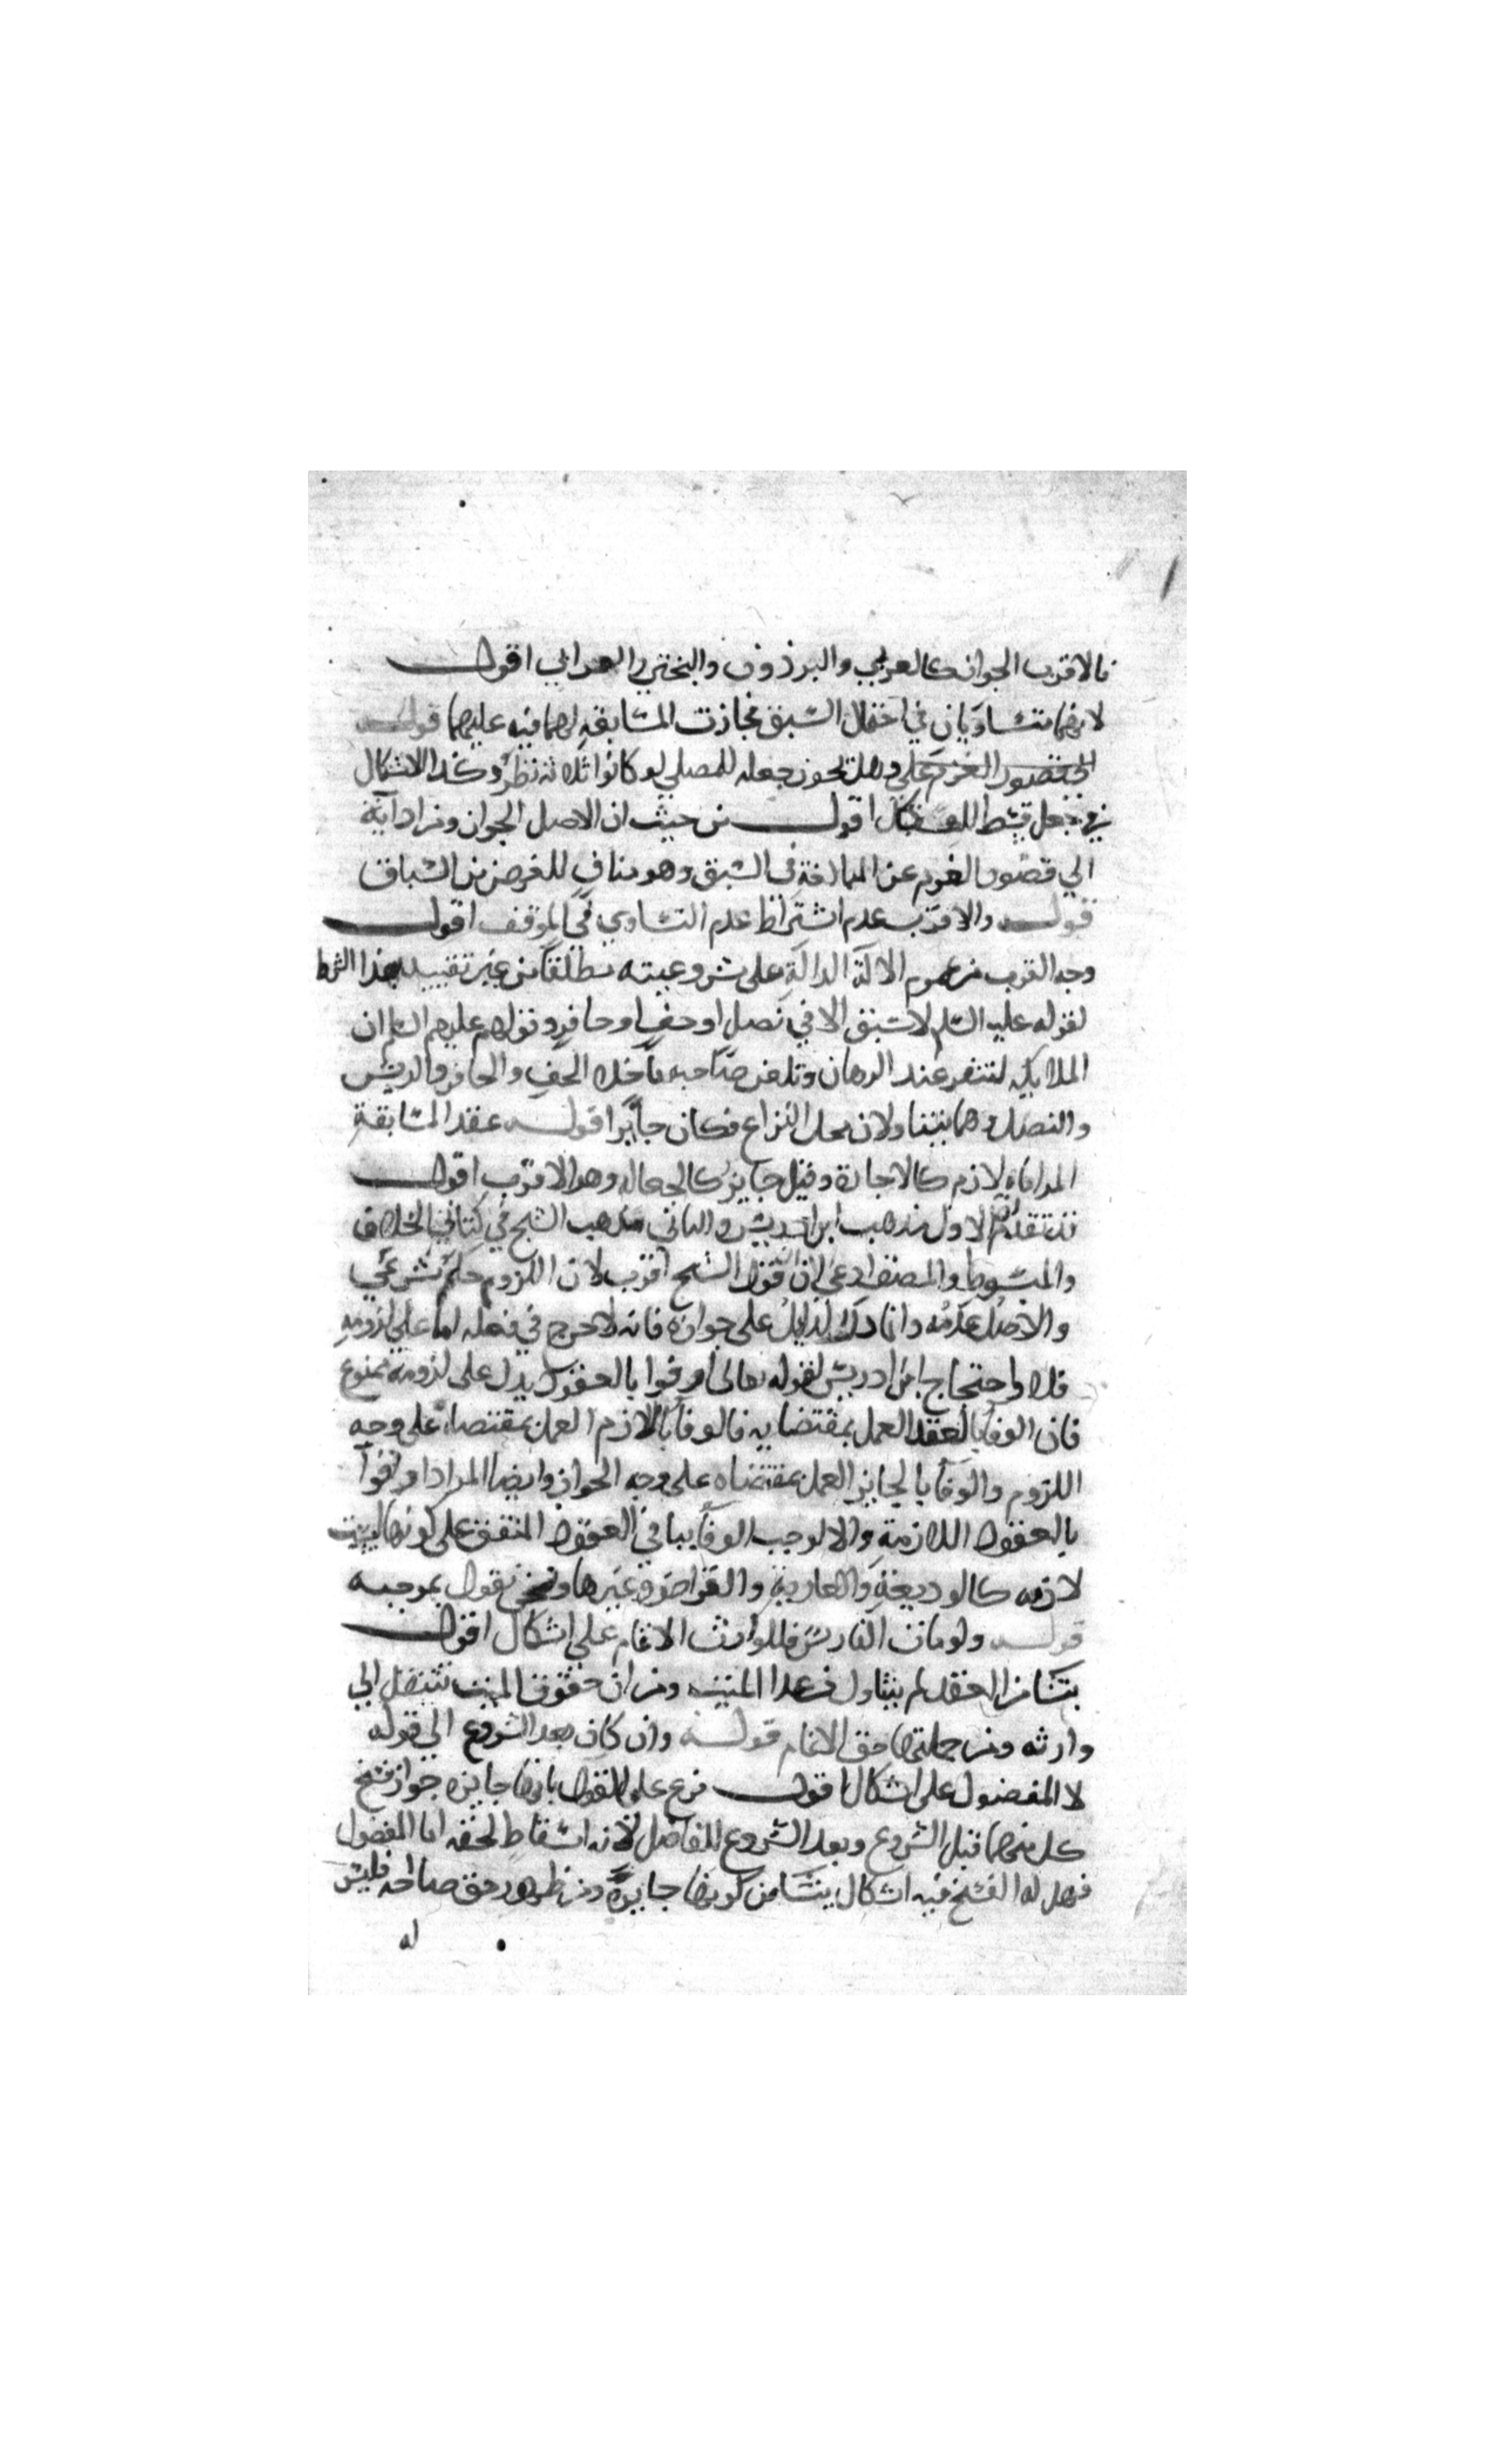 فالاقرب الجواز كالعربي والبرذون والبختي والعرابي اقول
لانهما متساويان في احتمال السبق فجازت المسابقة بهما فيه عليهما قوله
المقصود الغرم على وهل يجوز جعله للمصلي لو كانوا ثلاثة نظر وكذا الاشكال
في جعل قسط للفسكل اقول من حيث ان الاصل الجواز ومن ادائه
الي قصور الغرم عن المبالغة في السبق وهو مناف للغرض من السباق
قوله والاقرب عدم اشتراط عدم التساوي في الموقف اقول
وجه القرب من عموم الادلة الدالة على مشروعيته مطلقا من غير تقييد بهذا الشرط
لقوله عليه السلم لا سبق الا في نصل او خف او حافر وقولهم عليهم السلم ان
الملايكه لتنفر عند الرهان وتلعن صاحبه ما خلا الخف والحافر والريش
والنصل وهما يتناولان محل النزاع فكان جايزا قوله عقد المسابقة
المراماه لازم كالاجارة وقيل جايز كالجعاله وهو الاقرب اقول
قد تقدم ان الاول مذهب ابن ادريس والثاني مذهب الشيخ في كتابي الخلاف
والمبسوط والمصنف ادعى ان قول الشيخ اقرب لان اللزوم حكم شرعي
والاصل عدمه وانما دل الدليل على جوازه فانه لا حرج في فعله اما على لزومه
فلا واحتجاج ابن ادريس لقوله تعالى اوفوا بالعقود يدل على لزومه ممنوع
فان الوفا بالعقد العمل بمقتضايه فالوفا باللازم العمل بمقتضاه على وجه
اللزوم والوفا بالجايز العمل بمقتضاه على وجه الجواز وايضا المراد اوفوا
بالعقود اللازمة والا لوجب الوفا بباقي العقود المتفق على كونها ليست
لازمه كالوديعة والعارية والقراض وغيرها ونحن نقول بموجبه
قوله ولو مات الفارس فللوارث الاتمام على اشكال اقول
ينشا من العقد لم يتناول من عدا الميت ومن ان حقوق الميت تنتقل الي
وارثه ومن جملتها حق الاتمام قوله وان كان بعد الشروع الى قوله
لا المفضول على اشكال اقول فرع على القول بانها جايزه جواز فسخ
كل منهما قبل الشروع وبعد الشروع للفاضل لانه اسقاط لحقه اما المفضول
فهل له الفسخ فيه اشكال ينشا من كونها جايزة ومن ظهور حق صاحبه فليس
له